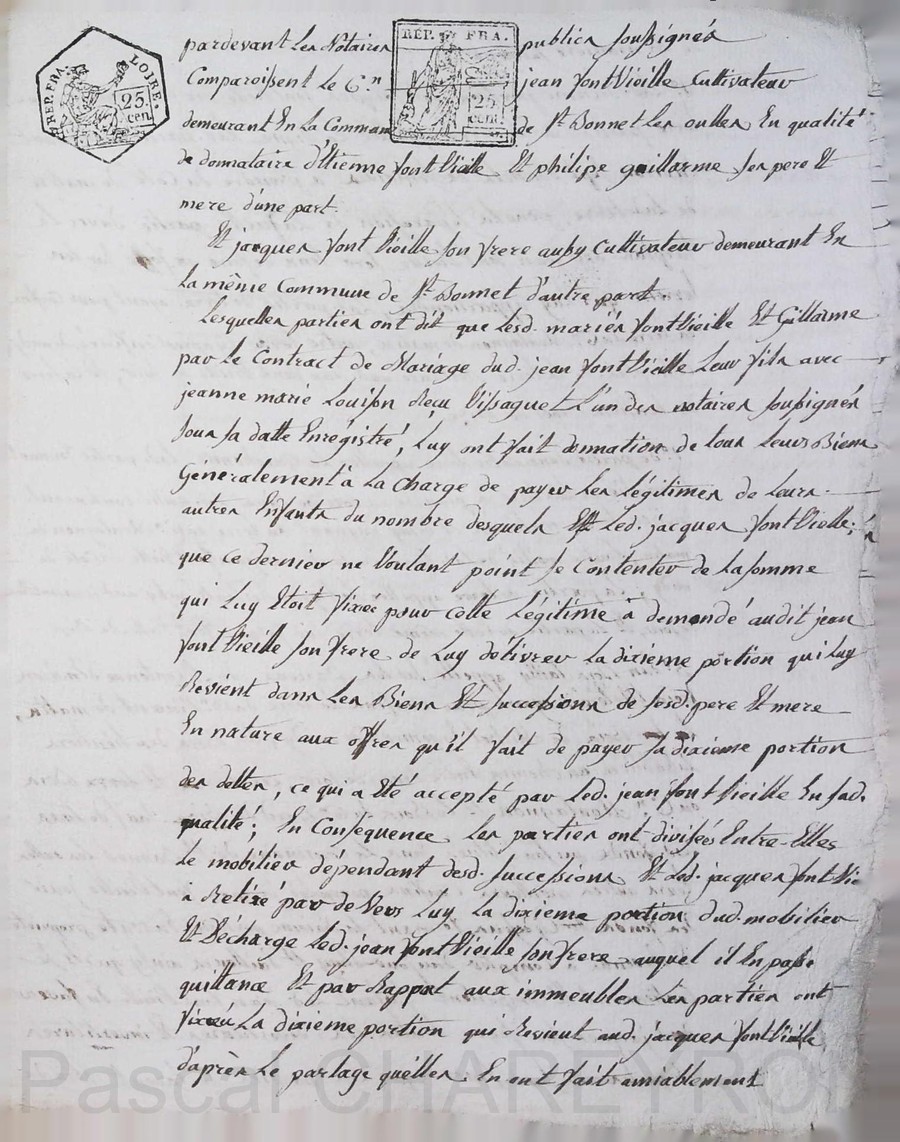 REP. FRA. LOIRE.
25. cen.
REP. FRA.
25 cent.
pardevant Les Notaires publics soussignés
Comparoissent Le C.n jean fontVieille Cultivateur
demeurant En La Commune de St Bonnet Les oulles En qualité
de donnataire d'Etienne fontVieille Et philipe guillarme ses pere Et
mere d'une part.
Et jacques fontVieille son frere aussy Cultivateur demeurant En
La même Commune de St Bonnet d'autre part.
Lesquelles parties ont dit que Lesd. mariés fontVieille Et Gillarme
par Le Contract de Mariage dud. jean fontVieille Leur fils avec
jeanne marie Louison Reçu Vissaguet L'un des notaires soussignés
sous sa datte Enrégistré, Luy ont fait donnation de tous Leurs Biens
Généralement à La Charge de payer Les Légitimes de Leurs
autres Enfants du nombre desquels Est Led. jacques fontVielle;
que ce dernier ne Voulant point se Contenter de La somme
qui Luy Etoit fixée pour cette Légitime à demandé audit jean
fontVieille son frere de Luy délivrer La dixieme portion qui Luy
Revient dans Les Biens Et successions de sesd. pere Et mere
En nature aux offres qu'il fait de payer sa dixieme portion
des dettes, ce qui a Eté accepté par Led. jean fontVieille En sad.
qualité; En Conséquence Les parties ont divisées Entre Elles
Le mobilier dépendant desd. successions Et Led. jacques fontVie
à Retiré par deVers Luy La dixieme portion dud. mobilier
Et Décharge Led. jean fontVieille son frere auquel il En passe
quittance Et par Rapport aux immeubles Les parties ont
fixéé La dixieme portion qui Revient aud. jacques fontVieille
d'après Le partage quelles En ont fait amiablement
Pascal CHAREYRON